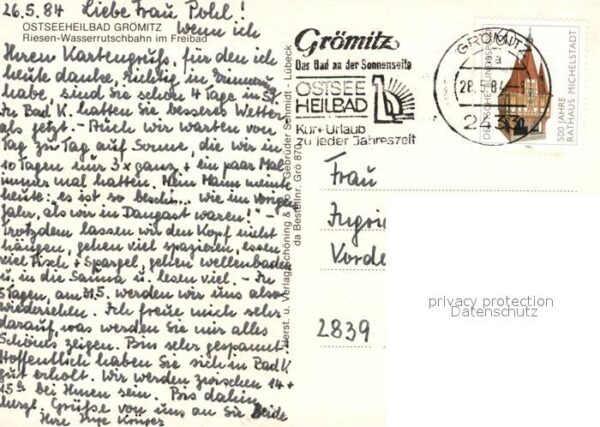 26.5.84 Liebe Frau Pohl!
OSTSEEHEILBAD GRÖMITZ
Riesen-Wasserrutschbahn im Freibad
Wenn ich
Ihren Kartengruß, für den ich
heute danke, richtig in Erinnerung
habe, sind Sie schon 4 Tage in
Zu Bad K. hatten Sie besseres Wetter
als jetzt. - Auch wir warten von
Tag zu Tag auf Sonne, die wir in
10 Tagen nur 3 x ganz + ein paar Mal
immer mal hatten. Mein Mann meinte
heute: es ist so besch... wie im vorigen
Jahr, als wir in Dangast waren!"
Trotzdem lassen wir den Kopf nicht
hängen, gehen viel spazieren, essen
viel Fisch + Spargel, gehen wellenbaden
u. in die Sauna u. lesen viel. - In
5 Tagen, am 31.5. werden wir uns also
wiedersehen. Ich freue mich sehr
darauf, was werden Sie mir alles
Schönes zeigen. Bin sehr gespannt.
Hoffentlich haben Sie sich in Bad K.
gut erholt. Wir werden zwischen 14 +
15h bei Ihnen sein. Bis dahin
herzl. Grüße von uns an Sie Beide
Ihre Inge Krüger
Herst. u. Verlag Schöning & Co + Gebrüder Schmidt - Lübeck
da Bestellnr. Grö 870
Grömitz
Das Bad an der Sonnenseite
OSTSEE
HEILBAD
Kur + Urlaub
zu jeder Jahreszeit
GRÖMITZ
28.5.84
2433
DEUTSCHE BUNDESPOST
500 JAHRE
RATHAUS MICHELSTADT
Frau
Ingri
Vorde
2839
privacy protection
Datenschutz